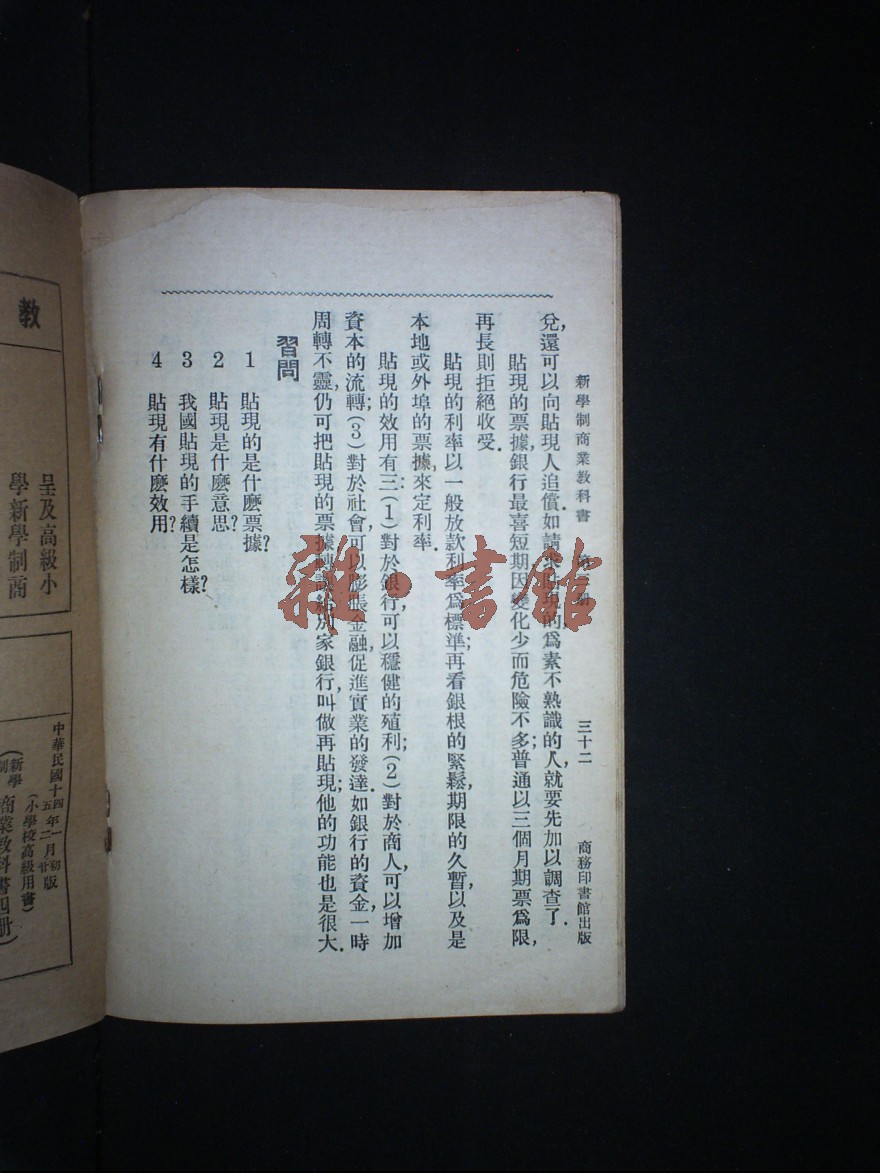 新學制商業教科書 第 冊 三十二 商務印書館出版
兌,還可以向貼現人追償.如請求貼現的,爲素不熟識的人,就要先加以調查了.
貼現的票據,銀行最喜短期,因變化少而危險不多;普通以三個月期票爲限,
再長則拒絕收受.
貼現的利率,以一般放款利率爲標準;再看銀根的緊鬆,期限的久暫,以及是
本地或外埠的票據,來定利率.
貼現的效用有三:(1)對於銀行可以穩健的殖利;(2)對於商人,可以增加
資本的流轉;(3)對於社會,可以膨脹金融,促進實業的發達.如銀行的資金,一時
周轉不靈,仍可把貼現的票據,轉讓給別家銀行,叫做再貼現;他的功能也是很大.
習問
1 貼現的是什麽票據?
2 貼現是什麽意思?
3 我國貼現的手續是怎樣?
4 貼現有什麽效用?
雜·書館
教
呈及高級小
學新學制商
中華民國十四年一月初版
十五年二月廿版
(小學校高級用書)
(新學制 商業教科書四册)